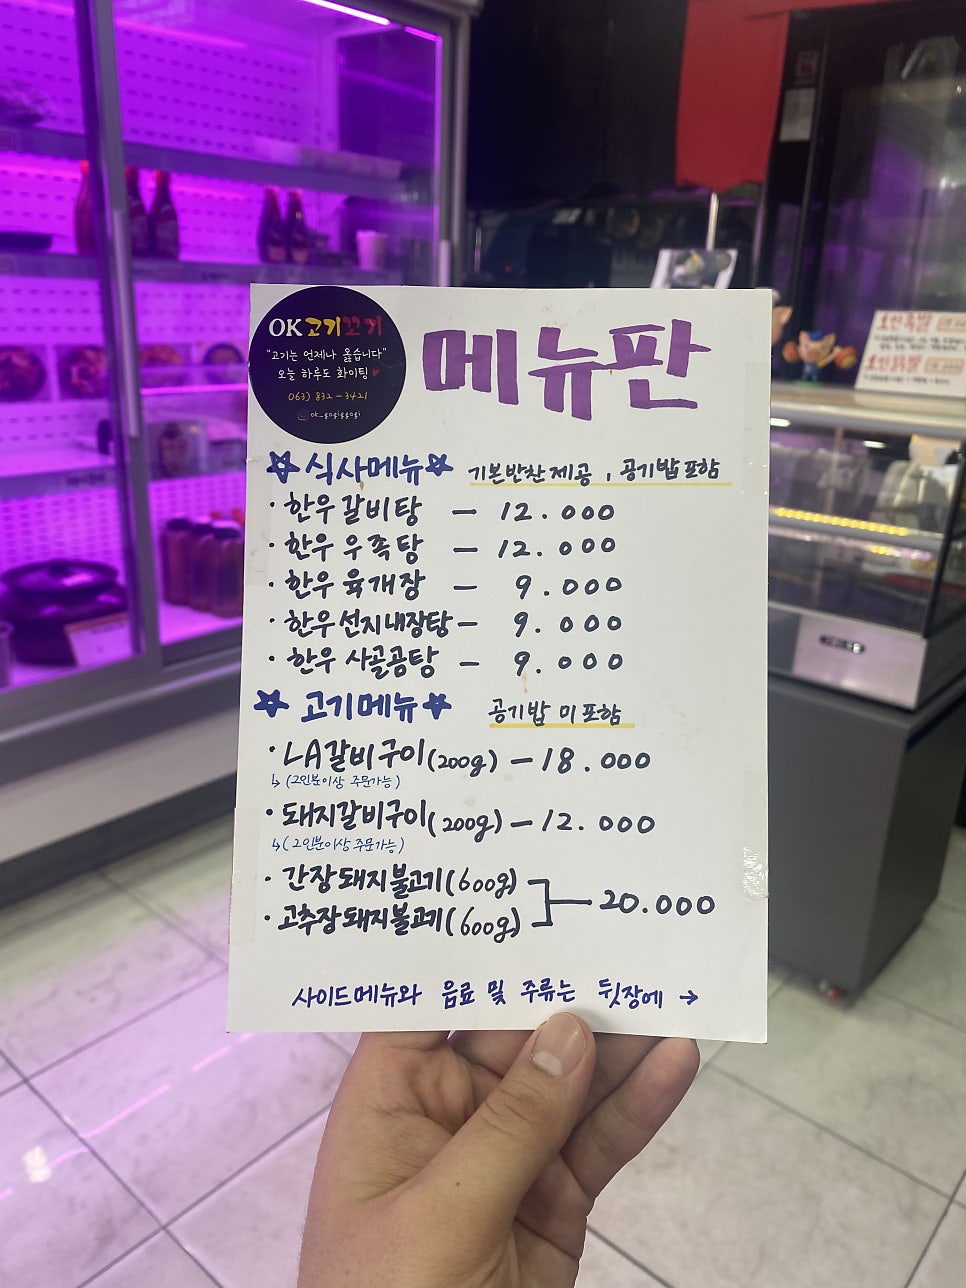 OK 고기꼬기
"고기는 언제나 옳습니다"
오늘 하루도 화이팅♥
063) 832-3421
메뉴판
☆식사메뉴☆ 기본반찬제공, 공기밥포함
· 한우 갈비탕 — 12.000
· 한우 우족탕 — 12.000
· 한우 육개장 — 9.000
· 한우 선지내장탕 — 9.000
· 한우 사골곰탕 — 9.000
☆ 고기메뉴☆ 공기밥 미포함
· LA갈비구이(200g) — 18.000
↳ (2인분이상 주문가능)
· 돼지갈비구이(200g) — 12.000
↳ (2인분이상 주문가능)
· 간장돼지불고기(600g)
· 고추장돼지불고기(600g) — 20.000
사이드메뉴와 음료 및 주류는 뒷장에 →